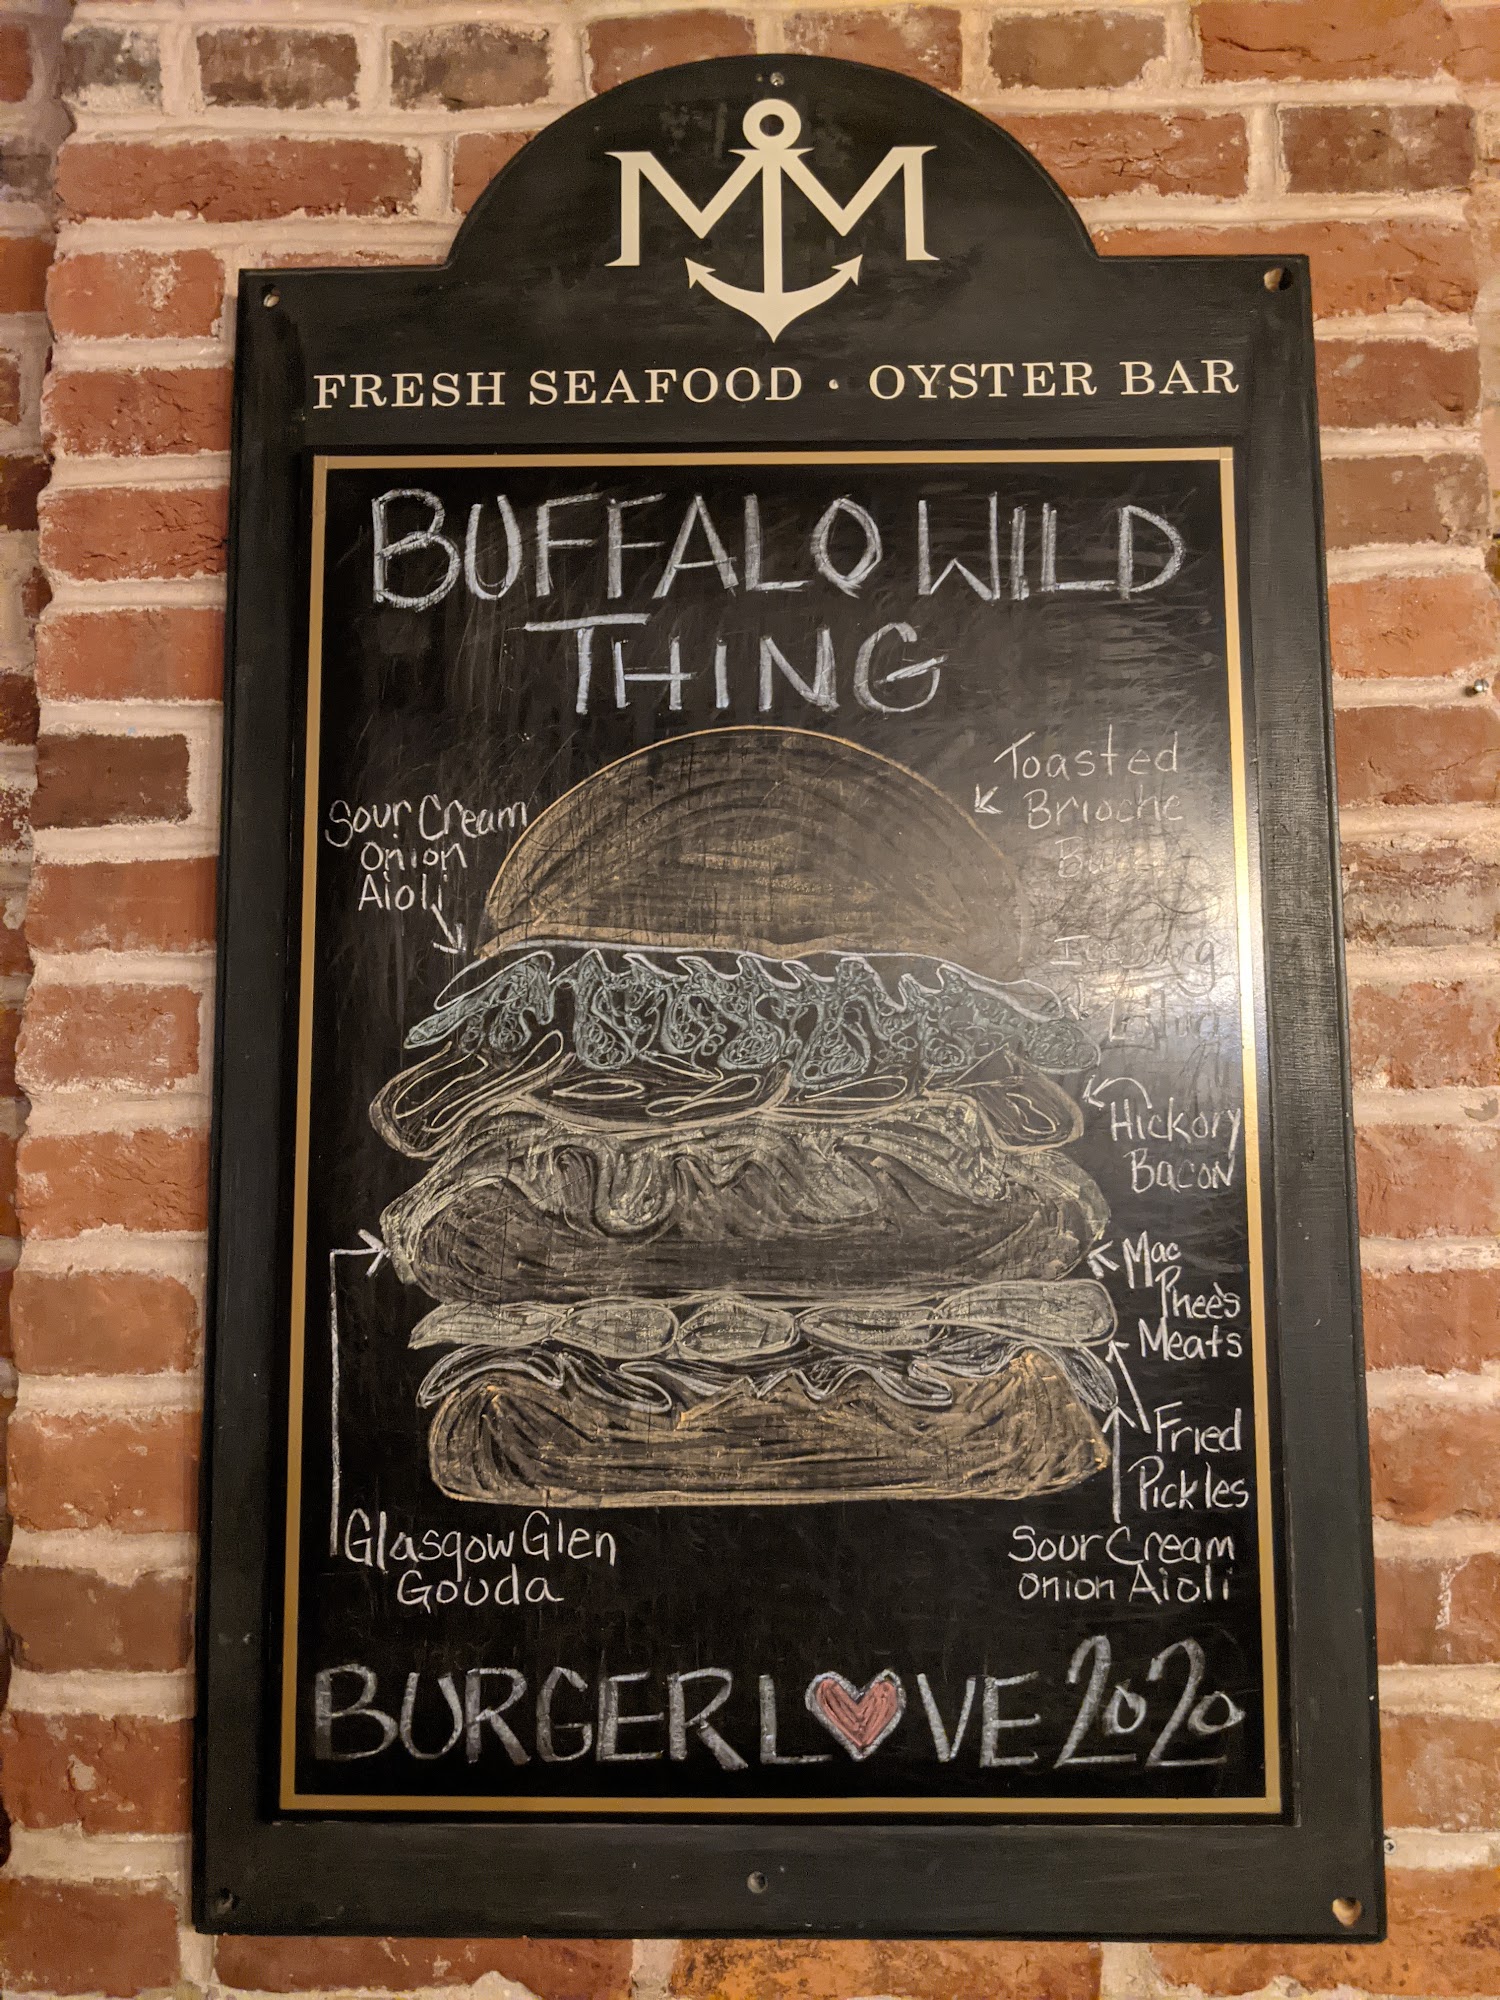 MM
FRESH SEAFOOD · OYSTER BAR
BUFFALO WILD
THING
Toasted
Brioche
Bun
Sour Cream
Onion
Aioli
Iceburg
Hickory
Bacon
Mac
Phee's
Meats
Fried
Pickles
Glasgow Glen
Gouda
Sour Cream
Onion Aioli
BURGERL❤VE 2020